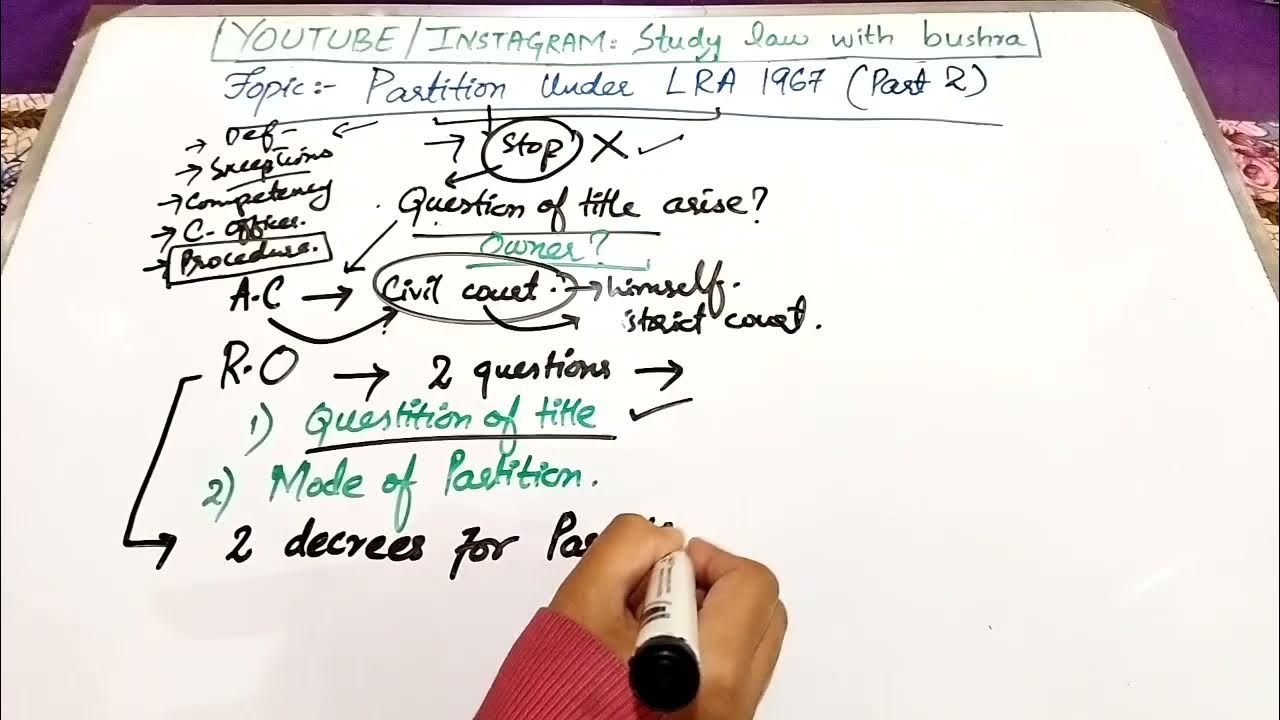 YOUTUBE/INSTAGRAM: Study law with bushra
Topic:- Partition Under LRA 1967 (Part 2)
→ Def- ←
→ Exceptions
→ Competency
→ C-officer.
→ Procedure.
→ Stop X ✓
Question of title arise?
Owner?
A.C → Civil court. → himself.
istrict court.
R.O → 2 questions →
1) Questition of title ✓
2) Mode of Partition.
→ 2 decrees for